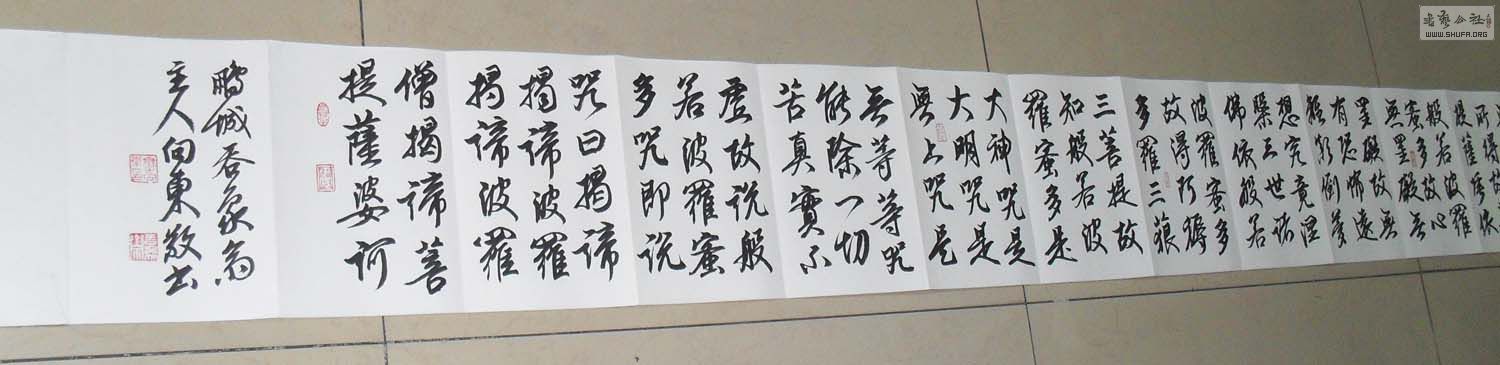 提薩埵依
般若波羅
蜜多故心
無罣礙無
罣礙故無
有恐怖遠
離顛倒夢
想究竟涅
槃三世諸
佛依般若
波羅蜜多
故得阿耨
多羅三藐
三菩提故
知般若波
羅蜜多是
大神咒是
大明咒是
無上咒是
无等等咒
能除一切
苦真實不
虛故說般
若波羅蜜
多咒即說
咒曰揭諦
揭諦波羅
揭諦波羅
僧揭諦菩
提薩婆訶
鵬城吞象齋
主人向東敬书
书艺公社
WWW.SHUFA.ORG